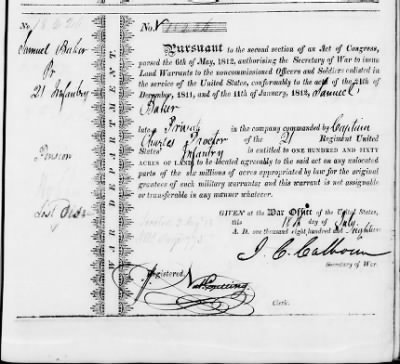 No.
Samuel Baker
Pr
21 Infantry
Pension
Lost Bds
WAR DEPARTMENT.
No.
Pursuant to the second section of an Act of Congress,
passed the 6th of May, 1812, authorising the Secretary of War to issue
Land Warrants to the noncommissioned Officers and Soldiers enlisted in
the service of the United States, conformably to the acts of the 24th of
December, 1811, and the 11th of January, 1812, Samuel
Baker
late Private in the company commanded by Captain
Charles Proctor of the 21 Regiment United
States Infantry
is entitled to ONE HUNDRED AND SIXTY
ACRES OF LAND, to be located agreeably to the said act on any unlocated
parts of the six millions of acres appropriated by law for the original
grantees of such military warrants; and this warrant is not assignable
or transferable in any manner whatever.
GIVEN at the War Office of the United States,
this 18th day of July
A.D. one thousand eight hundred and Eighteen
J. C. Calhoun
Secretary of War.
Registered
Clerk.